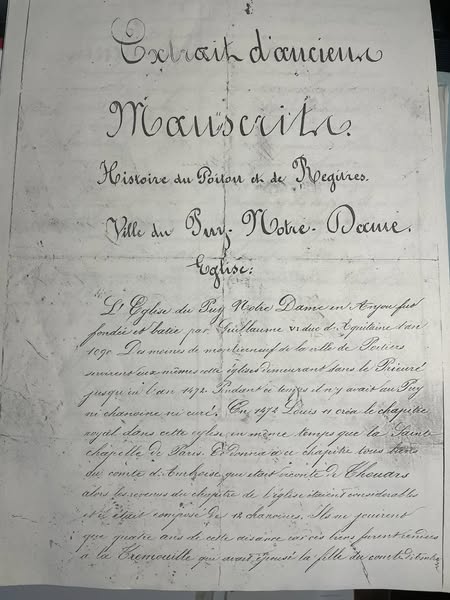 Extrait d'anciens
Manuscrits.
Histoire du Poitou et de Registres.
Ville du Puy-Notre-Dame.
Eglise:
L'Eglise du Puy Notre Dame en Anjou fut
fondée et batie par Guillaume VI duc d'Aquitaine l'an
1090. Des moines de montierneuf de la ville de Poitiers
servirent eux mêmes cette église demeurant dans le Prieuré
jusqu'en l'an 1472 Pendant ce temps il n'y avait au Puy
ni chanoine, ni curé. En 1472 Louis 11 créa le chapitre
royal dans cette eglise en même temps que la Sainte
chapelle de Paris. Et donna à ce chapitre tous biens
du comte d'Amboise, qui etait vicomte de Thouars
alors les revenus du chapitre de l'église étaient considerables
et il était composé de 12 chanoines. Ils ne jouirent
que quatre ans de cette aisance car ces biens furent rendus
à la Tremouille qui avait épousé la fille du comte d'Amboise